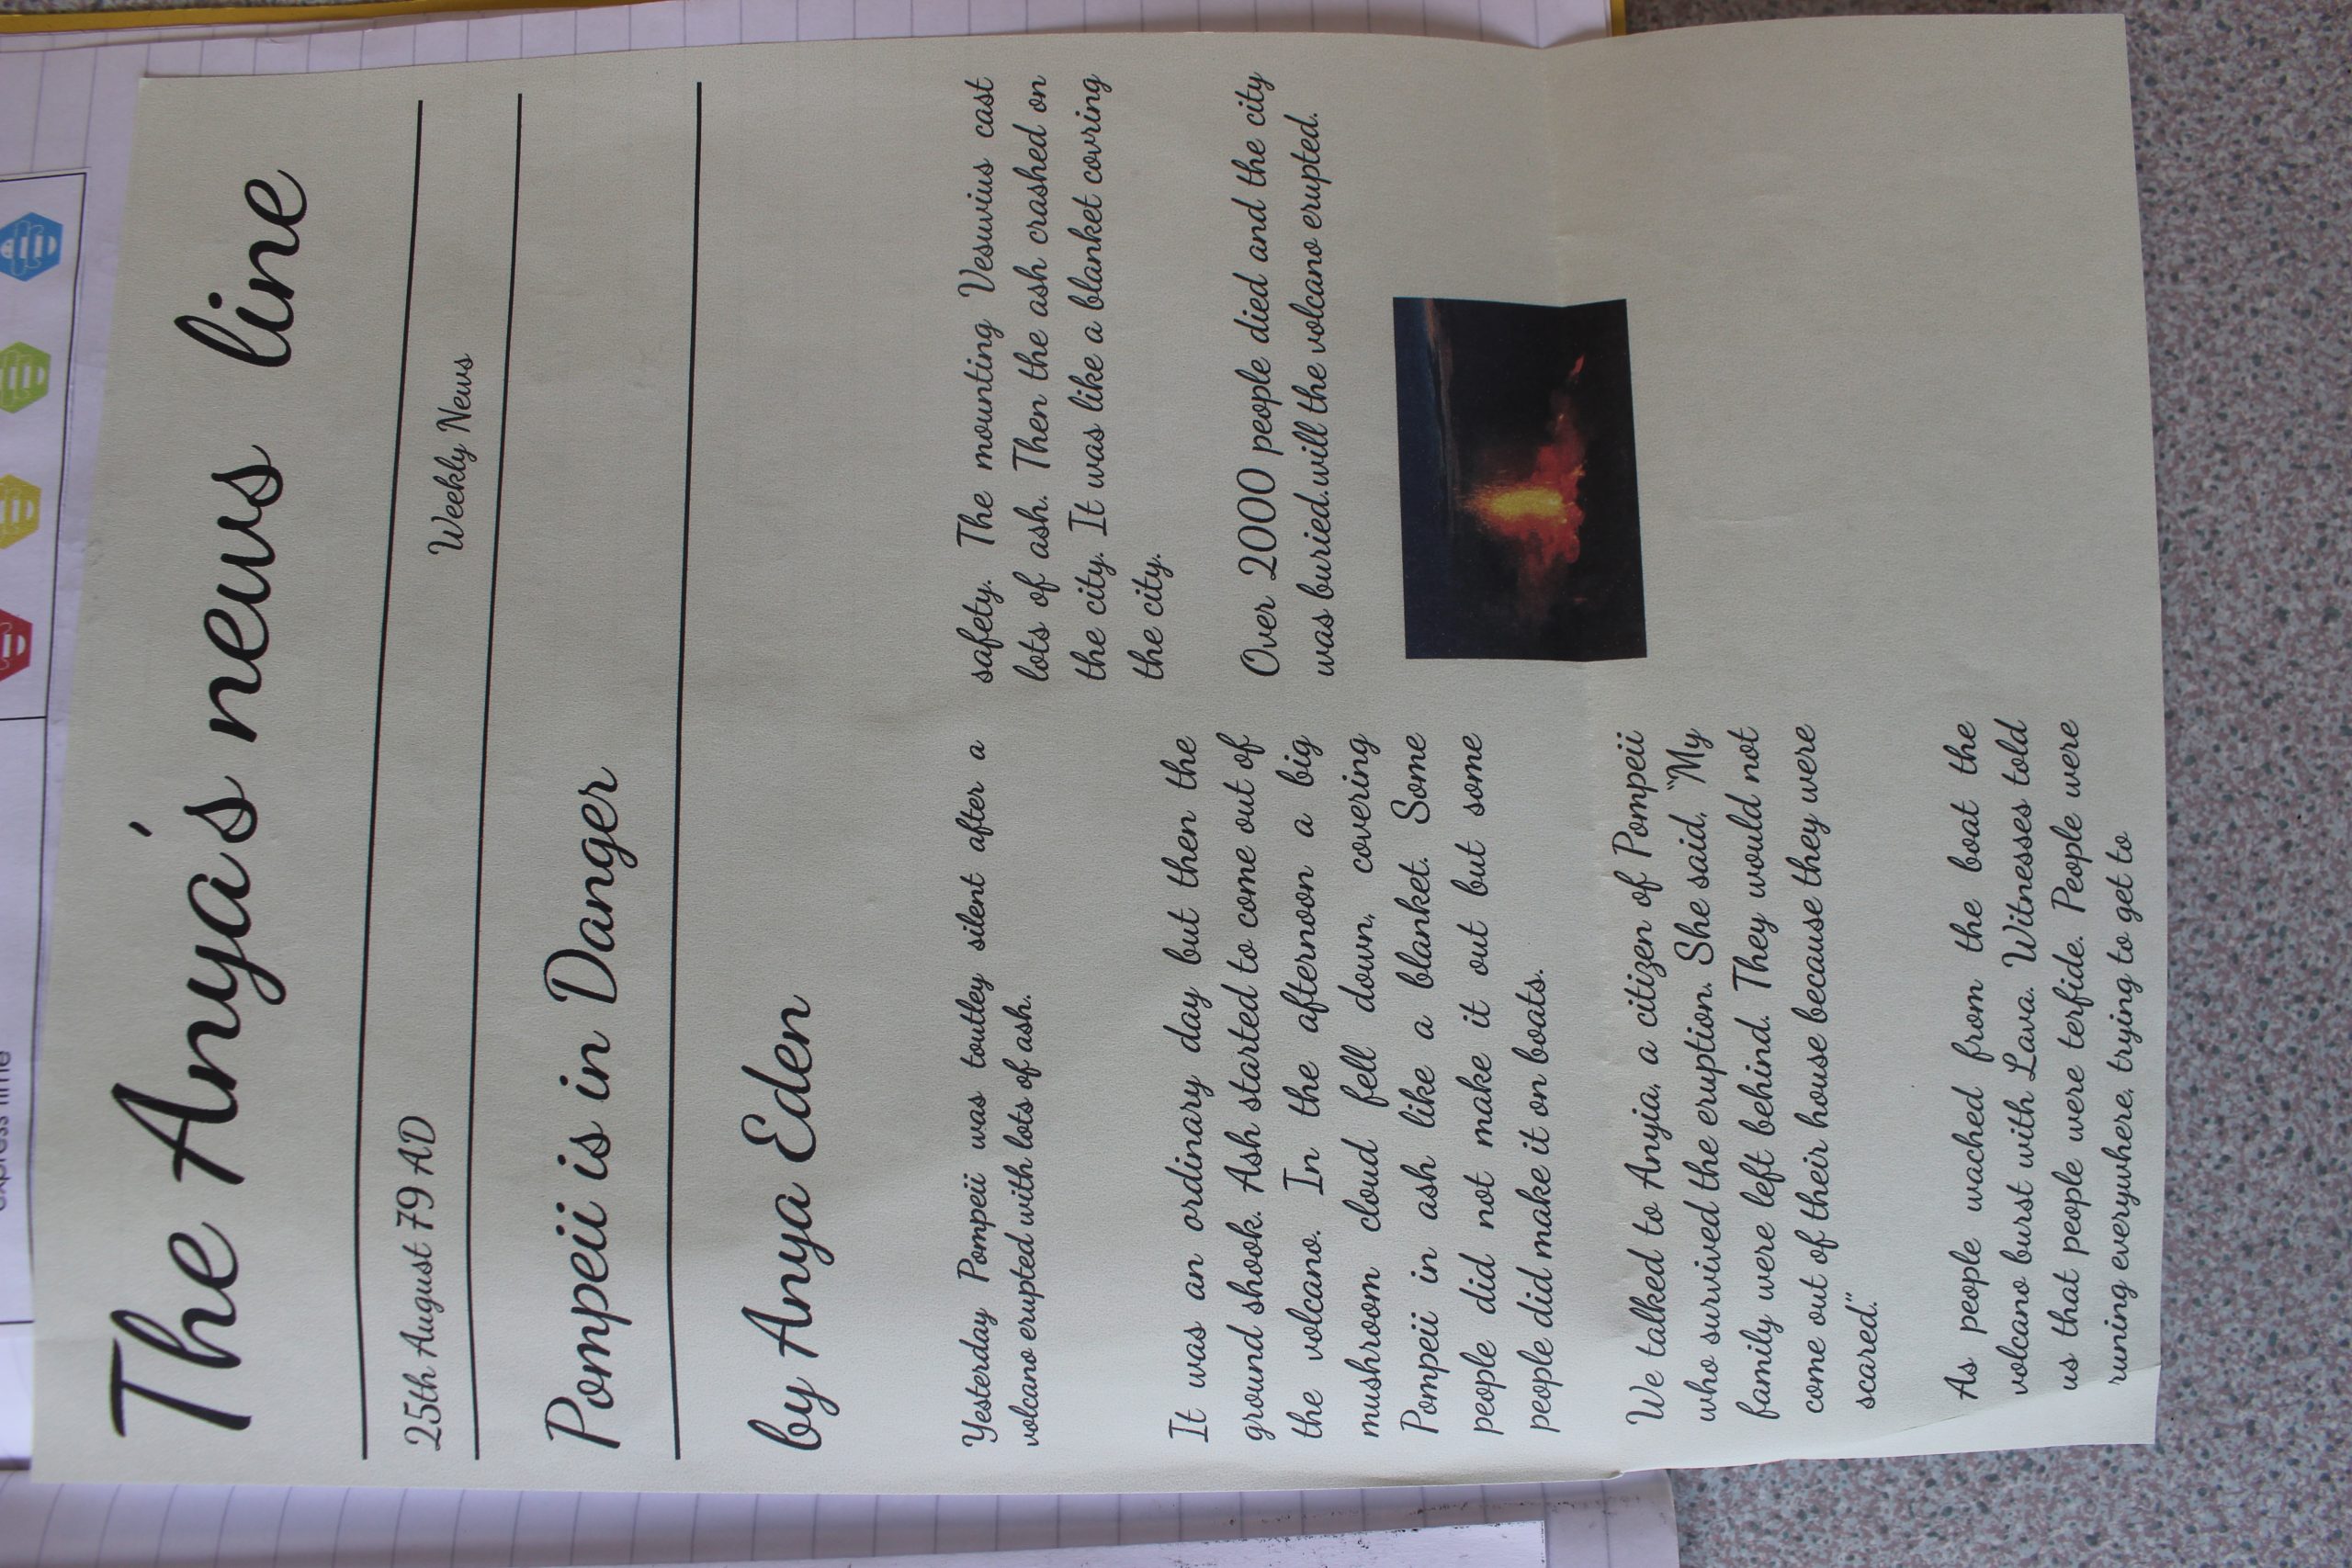 The Anya's news line
25th August 79 AD
Weekly News
Pompeii is in Danger
by Anya Eden
Yesterday Pompeii was toutley silent after a
volcano erupted with lots of ash.
It was an ordinary day but then the
ground shook. Ash started to come out of
the volcano. In the afternoon a big
mushroom cloud fell down, covering
Pompeii in ash like a blanket. Some
people did not make it out but some
people did make it on boats.
We talked to Anyia, a citizen of Pompeii
who survived the eruption. She said, "My
family were left behind. They would not
come out of their house because they were
scared."
As people wached from the boat the
volcano burst with Lava. Witnesses told
us that people were terfide. People were
runing everywhere, trying to get to
safety. The mounting Vesuvius cast
lots of ash. Then the ash crashed on
the city. It was like a blanket covring
the city.
Over 2000 people died and the city
was buried.will the volcano erupted.